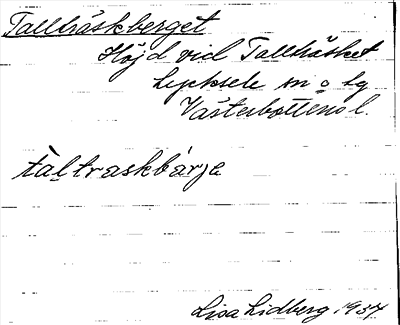 Tallträskberget
Höjd vid Tallträsket
Lycksele sn o lg
Västerbottens l.
tàltraskbàrjə
Lisa Lidberg 1934